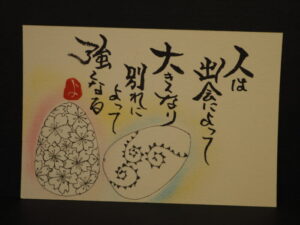 人は
出会によって
大きくなり
別れに
よって
強くなる
よ